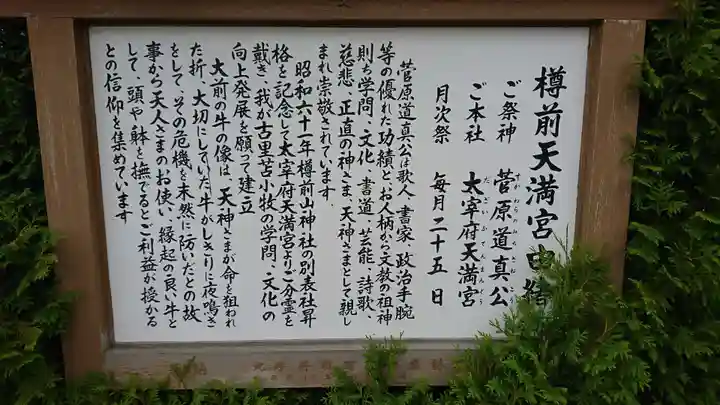 樽前天満宮由緒
ご祭神 菅原道真公
すがわらのみちざねこう
ご本社 太宰府天満宮
だざいふてんまんぐう
月次祭 毎月二十五日
菅原道真公は歌人、書家、政治手腕
等の優れた功績と、お人柄から文教の祖神
則ち学問、文化、書道、芸能、詩歌、
慈悲、正直の神さま、天神さまとして親し
まれ崇敬されています。
昭和六十一年樽前山神社の別表社昇
格を記念して太宰府天満宮よりご分霊を
戴き、我が古里苫小牧の学問、文化の
向上発展を願って建立
大前の牛の像は、天神さまが命を狙われ
た折、大切にしていた牛がしきりに夜鳴き
をして、その危機を未然に防いだとの故
事から天人さまのお使い、縁起の良い牛と
して、頭や躰を撫でるとご利益が授かる
との信仰を集めています